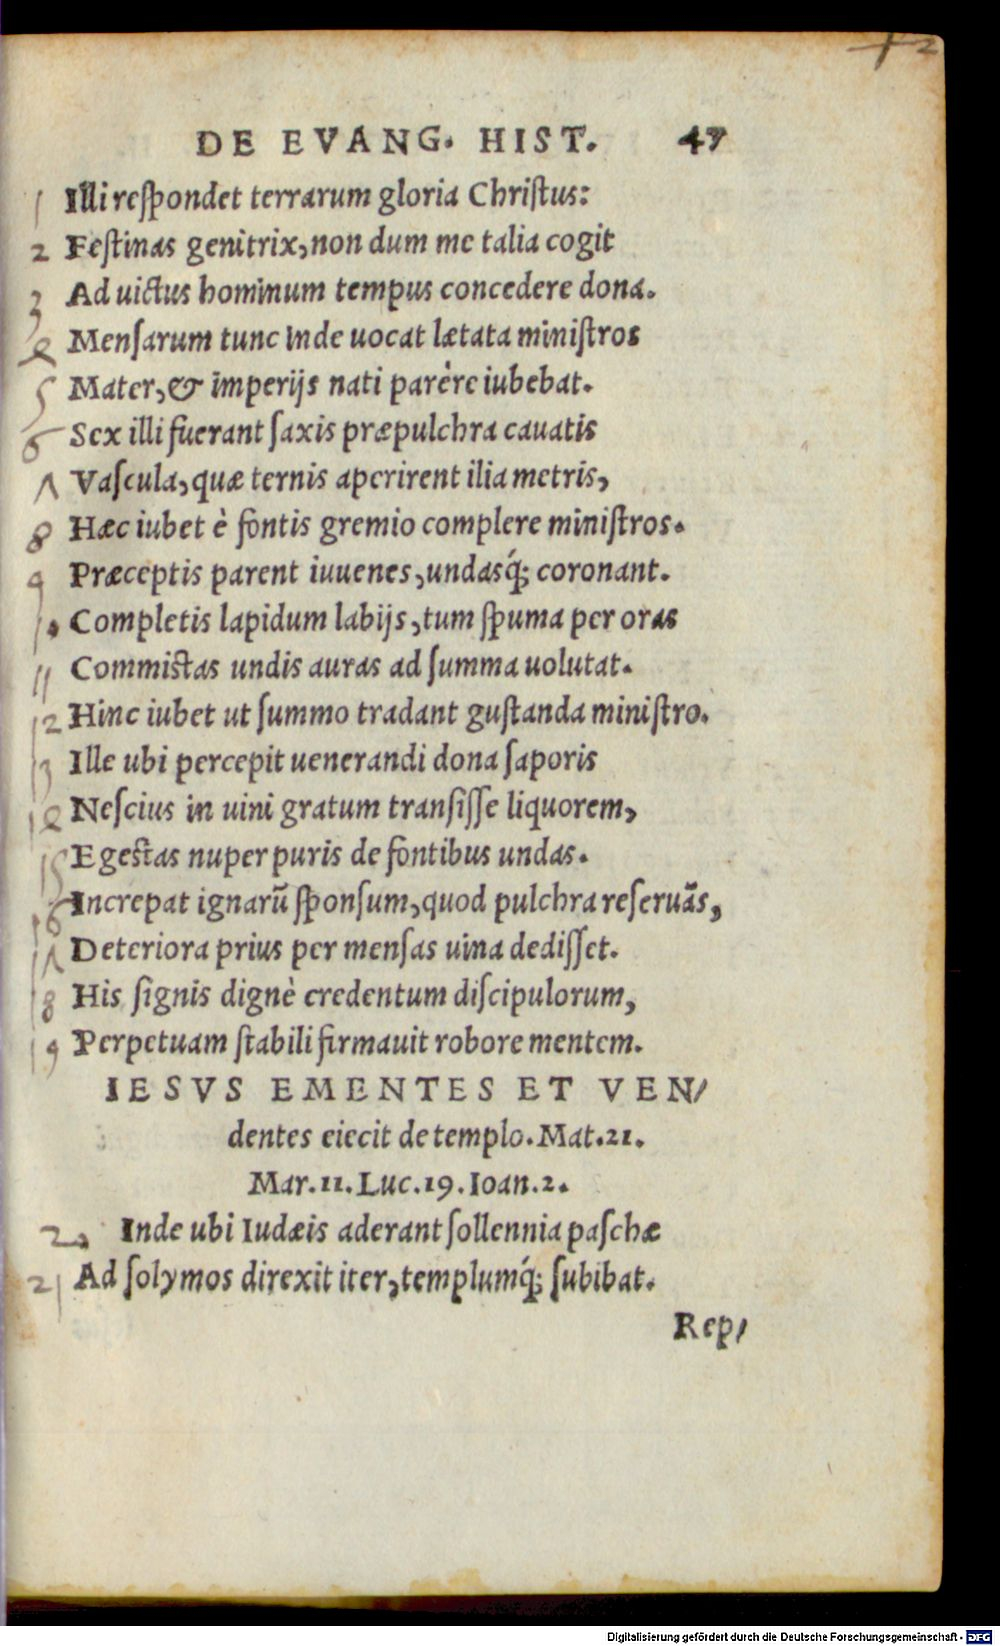 42
DE EVANG. HIST. 47
1 Illi reſpondet terrarum gloria Chriſtus:
2 Feſtinas genitrix, non dum me talia cogit
3 Ad uictus hominum tempus concedere dona.
4 Menſarum tunc inde uocat lætata miniſtros
5 Mater, & imperijs nati parêre iubebat.
6 Sex illi fuerant ſaxis præpulchra cauatis
7 Vaſcula, quæ ternis aperirent ilia metris,
8 Hæc iubet è fontis gremio complere miniſtros.
9 Præceptis parent iuuenes, undasq́; coronant.
10 Completis lapidum labijs, tum ſpuma per oras
11 Commiſtas undis auras ad ſumma uolutat.
12 Hinc iubet ut ſummo tradant guſtanda miniſtro.
13 Ille ubi percepit uenerandi dona ſaporis
14 Neſcius in uini gratum tranſiſſe liquorem,
15 Egeſtas nuper puris de fontibus undas.
16 Increpat ignarũ ſponſum, quod pulchra reſeruãs,
17 Deteriora prius per menſas uina dediſſet.
18 His ſignis dignè credentum diſcipulorum,
19 Perpetuam ſtabili firmauit robore mentem.
IESVS EMENTES ET VEN/
dentes eiecit de templo. Mat. 21.
Mar. 11. Luc. 19. Ioan. 2.
20 Inde ubi Iudæis aderant ſollennia paſchæ
21 Ad ſolymos direxit iter, templumq́; ſubibat.
Rep/
Digitalisierung gefördert durch die Deutsche Forschungsgemeinschaft - DFG